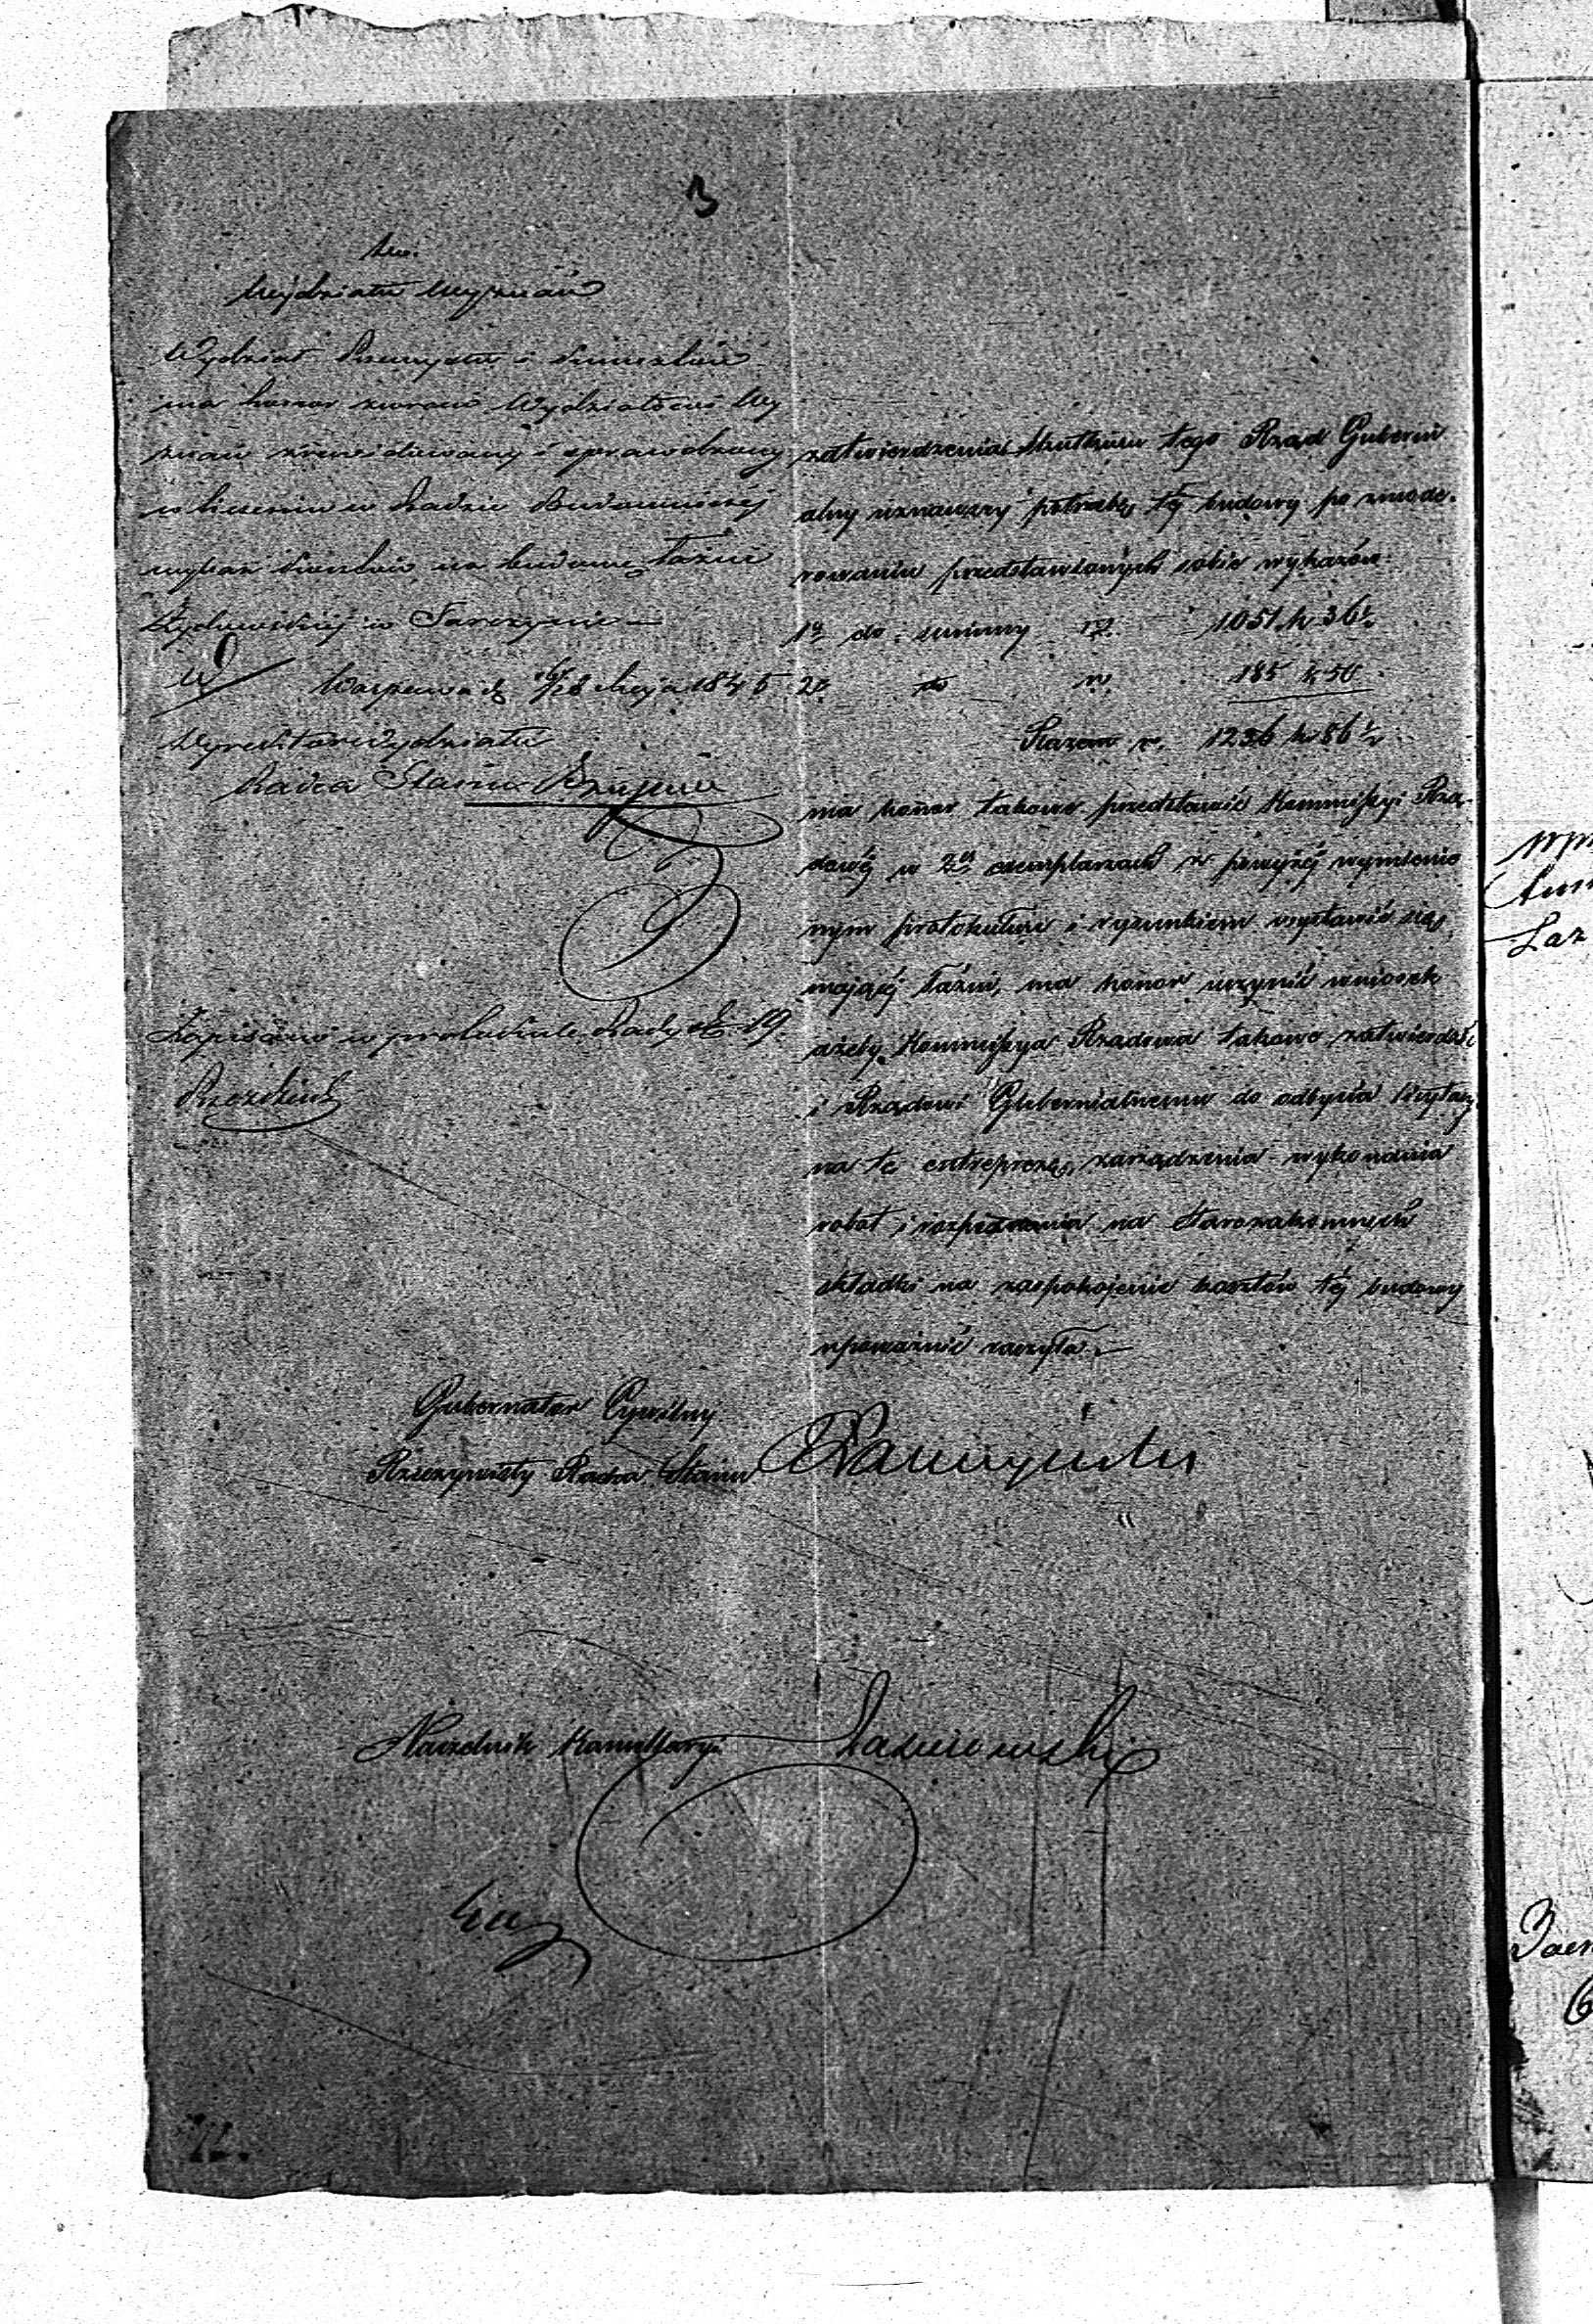 3
Wydziału Wyznań
Wydział Przemysłu i Kunsztów
ma honor zwrócić Wydziałowi Wy
znań zrewidowany i sprawdzony
w Radzie Budowniczéj
wykaz kosztów na budowę Łaźni
Żydowskiéj w Tarczynie —
Warszawa d. 16/28 Maja 1845
Dyrektor Wydziału
Radca Stanu
Zapisano w protokule Rady № 19.
zatwierdzenia. Skutkiem tego Rząd Guberni
alny uznawszy potrzebę téj budowy po zmode-
rowaniu przedstawionych sobie wykazów
1º do summy rs. 1051 k 36½
2º do rs. 185 k 50
Razem rs. 1236 k 86½
ma honor takowe przedstawić Kommissyi Rzą-
dowéj w 2ch exemplarzach z powyżéj wymienio
nym protokułem i rysunkiem wystawić się
mającéj Łaźni, ma honor uczynić wniosek
ażeby Kommissya Rządowa takowe zatwierdzić
i Rządowi Gubernialnemu do odbycia licytacyi
na tę entrepryzę, zarządzenia wykonania
robot i rozpisania na Starozakonnych
składki na zaspokojenie kosztów téj budowy
upoważnić raczyła.
Gubernator Cywilny
Rzeczywisty Radca Stanu
Naczelnik Kancellaryi